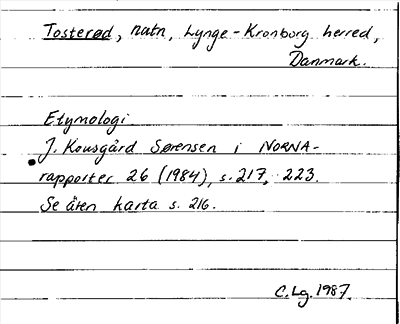 Tosterød, natn, Lynge-Kronborg herred,
Danmark.
Etymologi
J. Kousgård Sørensen i NORNA-
rapporter 26 (1984), s. 217, 223.
Se även karta s. 216.
C. Lg. 1987.